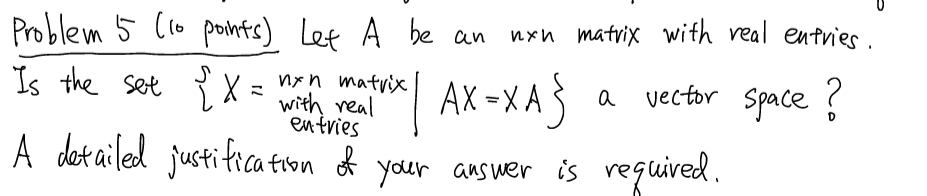 Problem 5 (10 points) Let A be an n×n matrix with real entries.
Is the set { X = n×n matrix with real entries | AX = XA } a vector space?
A detailed justification of your answer is required.